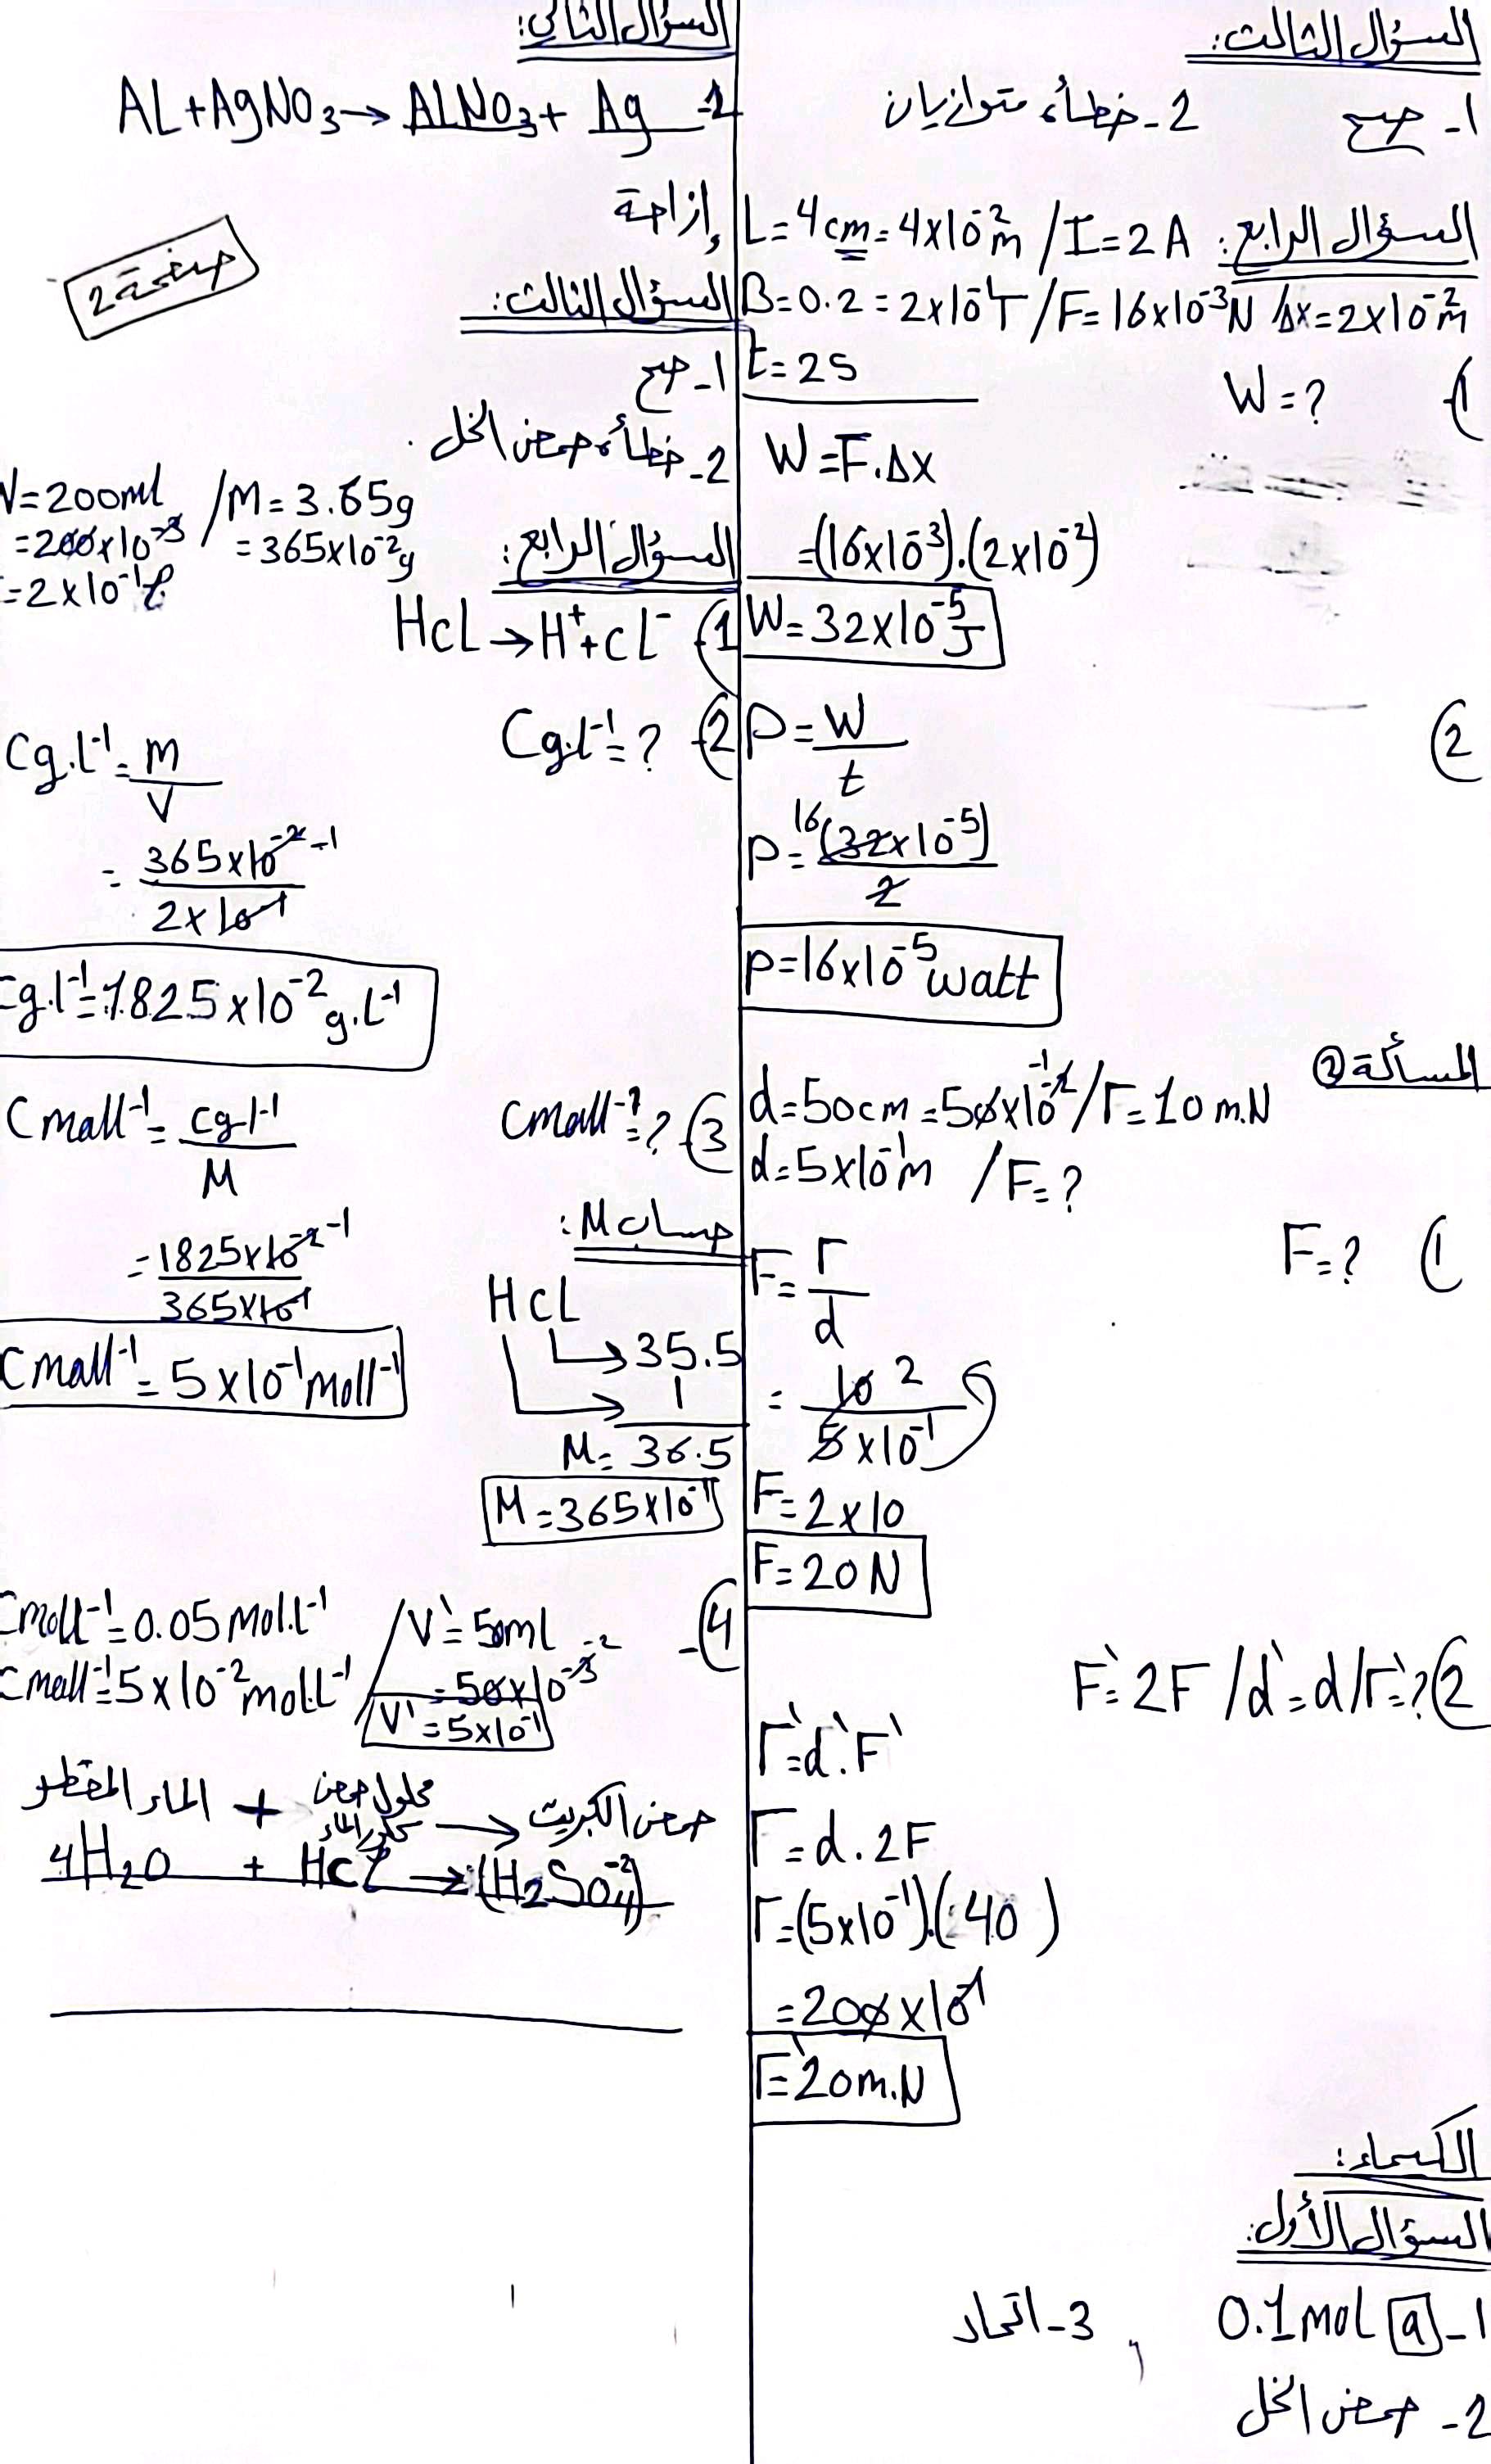 السؤال الثالث:
1- صح 2- خطأ، متوازيان
السؤال الرابع: L=4cm=4x10⁻²m / I=2A
B=0.2=2x10⁻¹T / F=16x10⁻³N / Δx=2x10⁻²m
t=2s
1) W=?
W=F.Δx
=(16x10⁻³).(2x10⁻²)
W=32x10⁻⁵J
2) P=W/t
P=16(32x10⁻⁵)/2
P=16x10⁻⁵watt
المسألة ②
d=50cm=50x10⁻²⁻¹/Γ=10m.N
d=5x10⁻¹m /F=?
1) F=?
F=Γ/d
=10 2/5x10⁻¹
F=2x10
F=20N
2) F`=2F /d`=d/Γ`=?
Γ`=d`.F`
Γ=d.2F
Γ=(5x10⁻¹).(40)
=200x10⁻¹
Γ`=20m.N
الكيمياء:
السؤال الأول:
1- a 0.1mol , 3- اتحاد
2- حمض الخل
السؤال الثاني:
1- AL+AgNO₃→ALNO₃+Ag
إزاحة
صفحة 2
السؤال الثالث:
1- صح
2- خطأ، حمض الخل.
السؤال الرابع:
V=200ml /M=3.65g
=200x10⁻³ / =365x10⁻²g
=2x10⁻¹l
1) HCL→H⁺+CL⁻
2) Cg.l⁻¹=?
Cg.l⁻¹=m/V
=365x10⁻²⁻¹/2x10⁻¹
Cg.l⁻¹=1825x10⁻²g.L⁻¹
3) Cmoll⁻¹=?
Cmoll⁻¹=cg.l⁻¹/M
حساب M:
HCL
→35.5
→1
M=36.5
M=365x10⁻¹
=1825x10⁻²⁻¹/365x10⁻¹
Cmoll⁻¹=5x10⁻¹moll⁻¹
4- Cmoll⁻¹=0.05mol.l⁻¹ /V`=50ml
Cmoll⁻¹=5x10⁻²mol.L⁻¹ / =50x10⁻³⁻²
V`=5x10⁻¹
الماء المقطر + محلول حمض كلور الماء → حمض الكبريت
4H₂O + HCl →(H₂SO₄⁻²)